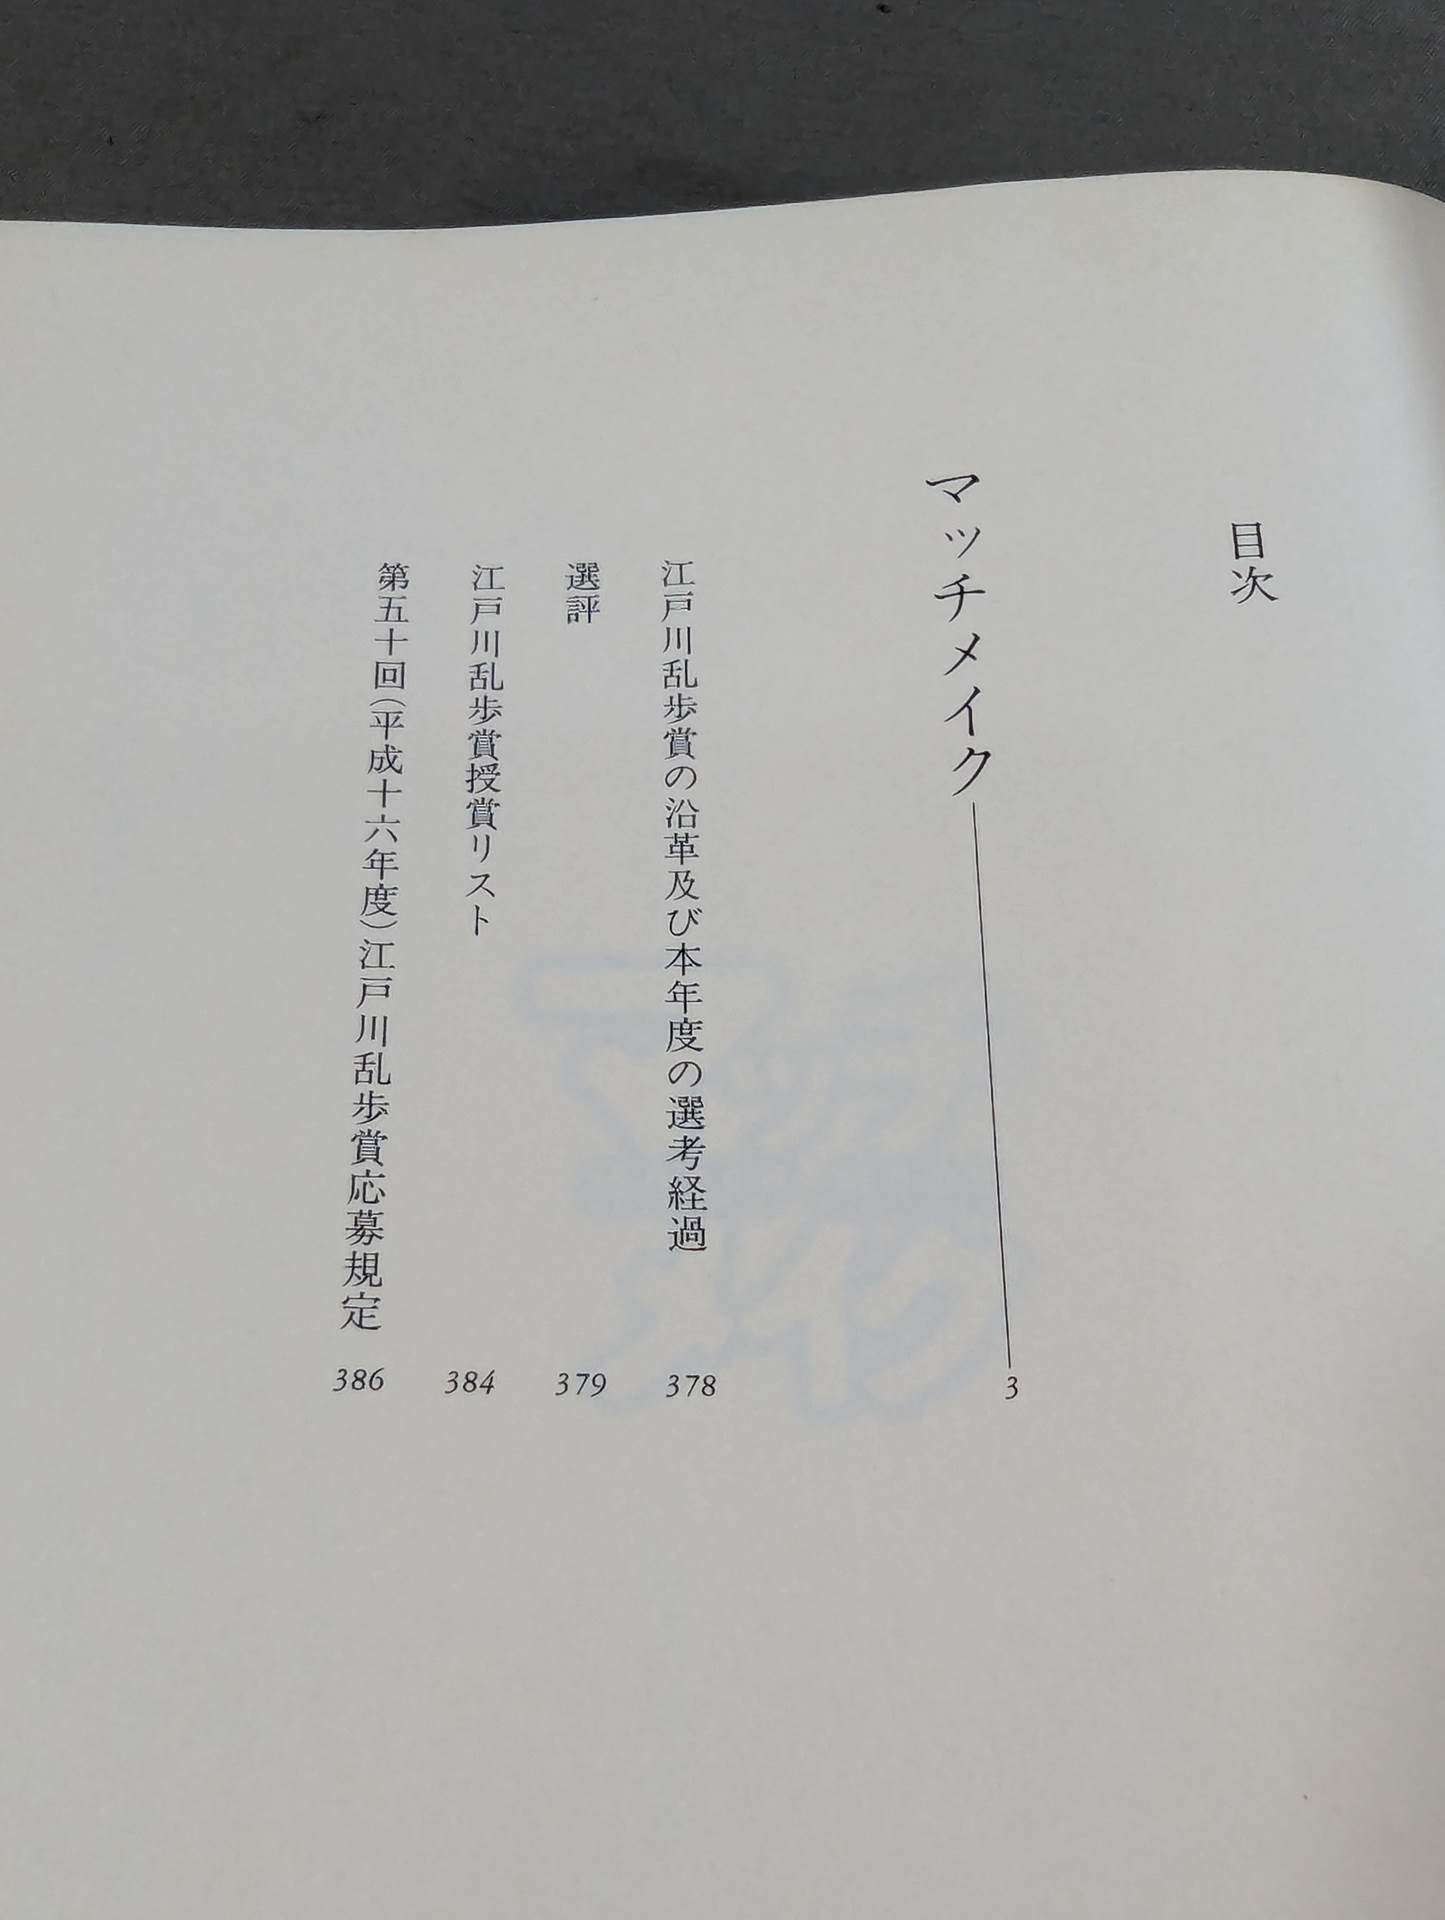 目次
マッチメイク 3
江戸川乱歩賞の沿革及び本年度の選考経過 378
選評 379
江戸川乱歩賞授賞リスト 384
第五十回(平成十六年度)江戸川乱歩賞応募規定 386